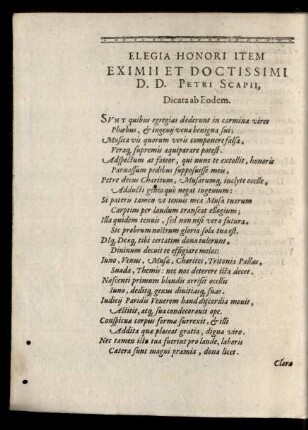 ELEGIA HONORI ITEM
EXIMII ET DOCTISSIMI
D. D. PETRI SCAPII,
Dicata ab Eodem.
SVNT quibus egregias dederunt in carmina vires
Phœbus, & ingenij vena benigna sui;
Musica vis quorum veris componere falsa,
Veraq́; supremis æquiparare potest.
Adspectum at fateor, qui nunc te extollit, honoris
Parnassum pedibus supposuisse meis,
Petre decus Charitum, Musarumq́; inclyte ocelle,
Adducti gesto quo negat ingenium;
Si pateris tamen ut tenuis mea Musa tuarum
Carptim per laudum transeat ellogium;
Illa quidem tenuis, sed non nisi vera futura.
Sic probrum nostrum gloria sola tua est.
Dîq́; Deæq́; tibi certatim dona tulerunt,
Divinum decuit te effigiare melos:
Iuno, Venus, Musæ, Charites, Tritonis Pallas,
Suada, Themis: nec nos deterere ista decet.
Nascenti primum blandis arrisit ocellis
Iuno, deditq́; genus divitiasq́; suas.
Iudicij Paridis Venerem haud discordia movit,
Astitit, atq́; sua condecoravit ope.
Conspicua corpus formæ surrexit, & illi
Addita quæ placeat gratia, digna viro.
Nec tamen ista tua fuerint pro laude, laboris
Cætera sunt magni præmia, dona licet.
Clara